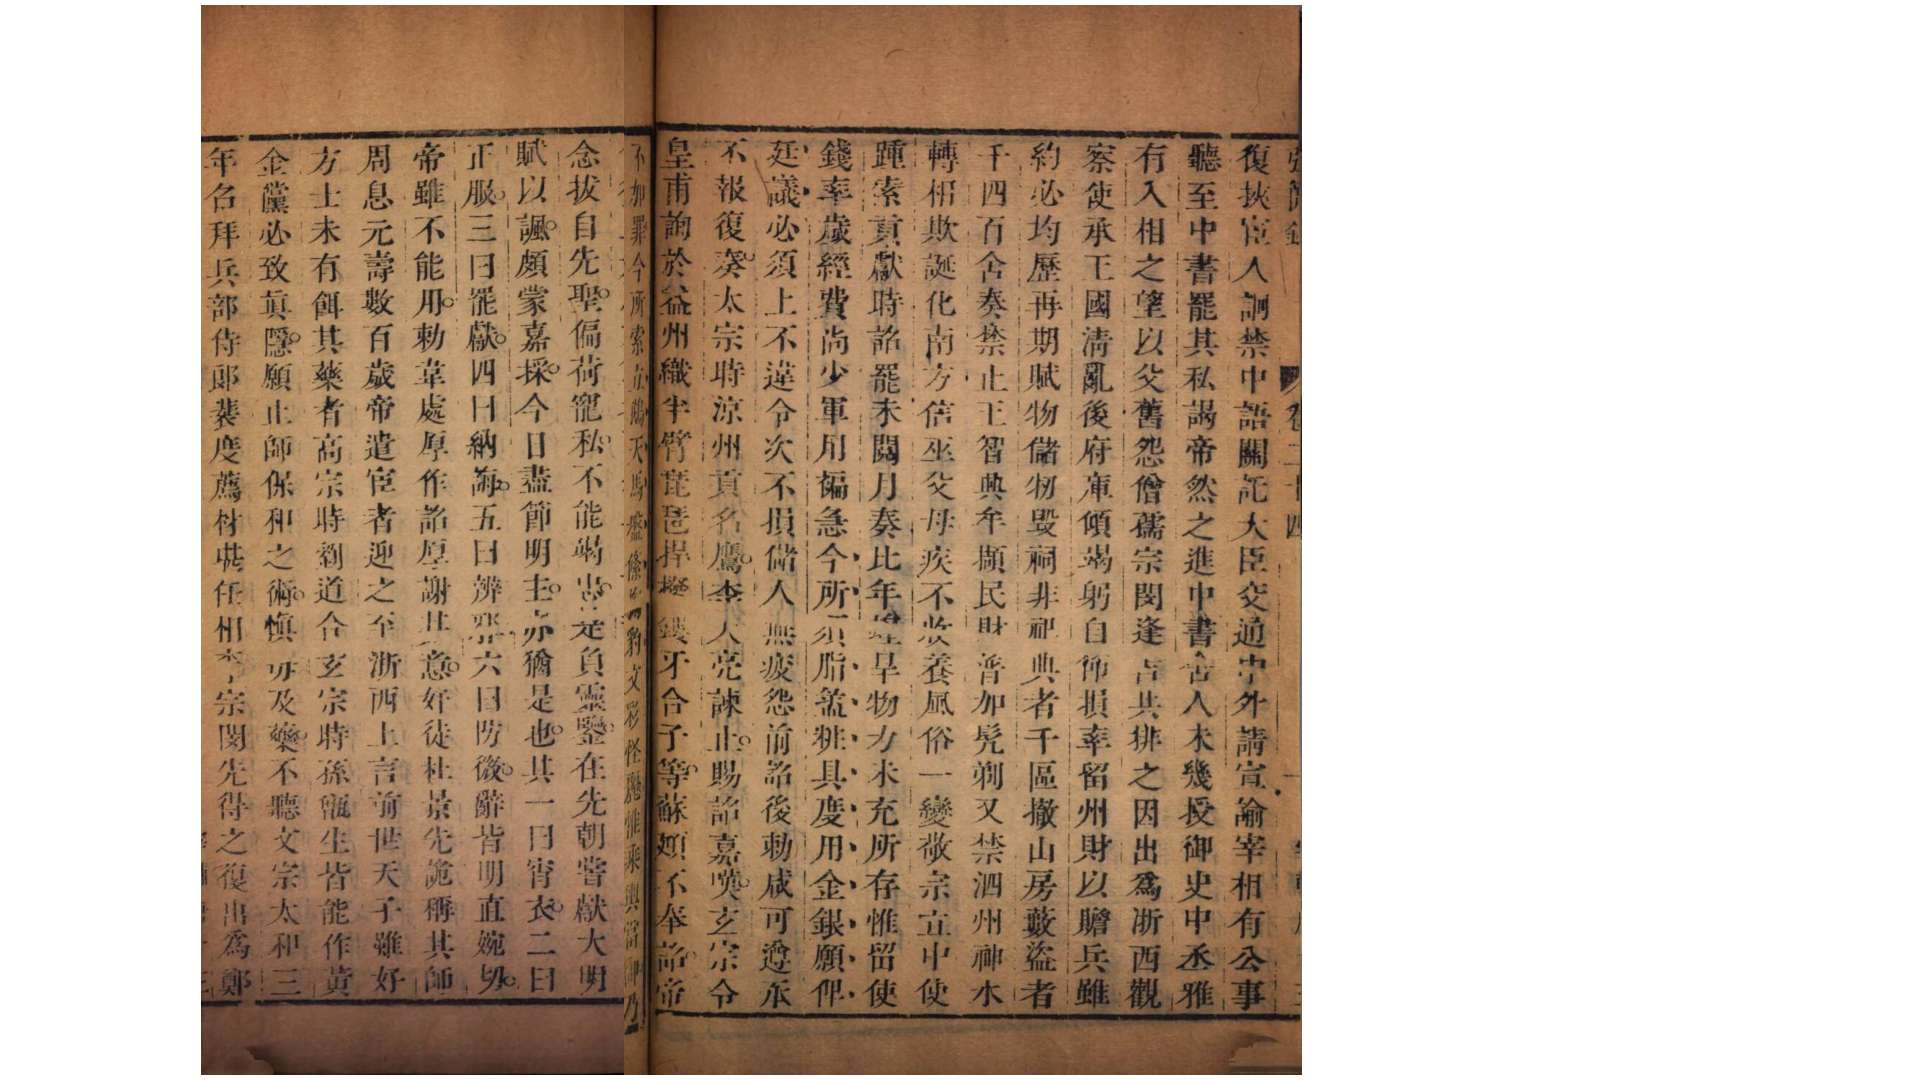 弘簡錄 卷二百四
復挾宦人詗禁中語關託大臣交通中外請宣諭宰相有公事
聽至中書罷其私謁帝然之進中書舍人未幾授御史中丞雅
有入相之望以父舊怨僧孺宗閔逢吉共排之因出爲浙西觀
察使承王國淸亂後府庫傾竭躬自儉損率留州財以贍兵雖
約必均歷再期賦物儲牣毀祠非祀典者千區撤山房藪盜者
千四百舍奏禁止王智興牟擷民財普加髠剃又禁泗州神水
轉相欺誕化南方信巫父母疾不收養風俗一變敬宗立中使
踵索貢獻時詔罷未閱月奏比年旱物力未充所存惟留使
錢率歲經費尚少軍用褊急今所須脂盝粧具度用金銀願俾
廷議必須上不違令次不損儲人無疲怨前詔後勅咸可遵承
不報復奏太宗時涼州貢名鷹李大亮諫止賜詔嘉嘆玄宗令
皇甫詢於益州織半臂琵琶捍撥鏤牙合子等蘇頲不奉詔帝
不加罪今所索立鵝天馬盤絛豹文彩怪麗惟乘輿當御乃
念拔自先聖偏荷寵私不能竭忠是負靈鑒在先朝嘗獻大明
賦以諷頗蒙嘉採今日盡節明主亦猶是也其一曰宵衣二曰
正服三曰罷獻四曰納誨五曰辨邪六曰防微辭皆明直婉切
帝雖不能用勅韋處厚作詔厚謝其意好徒杜景先詭稱其師
周息元壽數百歲帝遣宦者迎之至浙西上言前世天子雖好
方士未有餌其藥者高宗時劉道合玄宗時孫甑生皆能作黃
金黨必致眞隱願止師保和之術愼毋及藥不聽文宗太和三
年名拜兵部侍郎裴度薦材堪任相宗閔先得之復出爲鄭